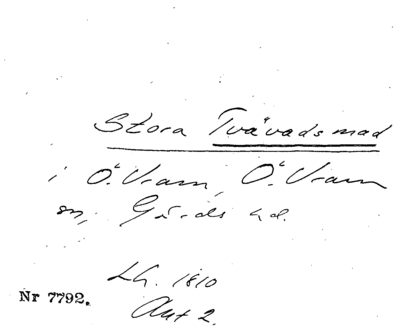 Stora Tvåvadsmad
i Ö. Vram, Ö. Vram
sn, Gärds hd.
Lh. 1810
Akt 2.
Nr 7792.